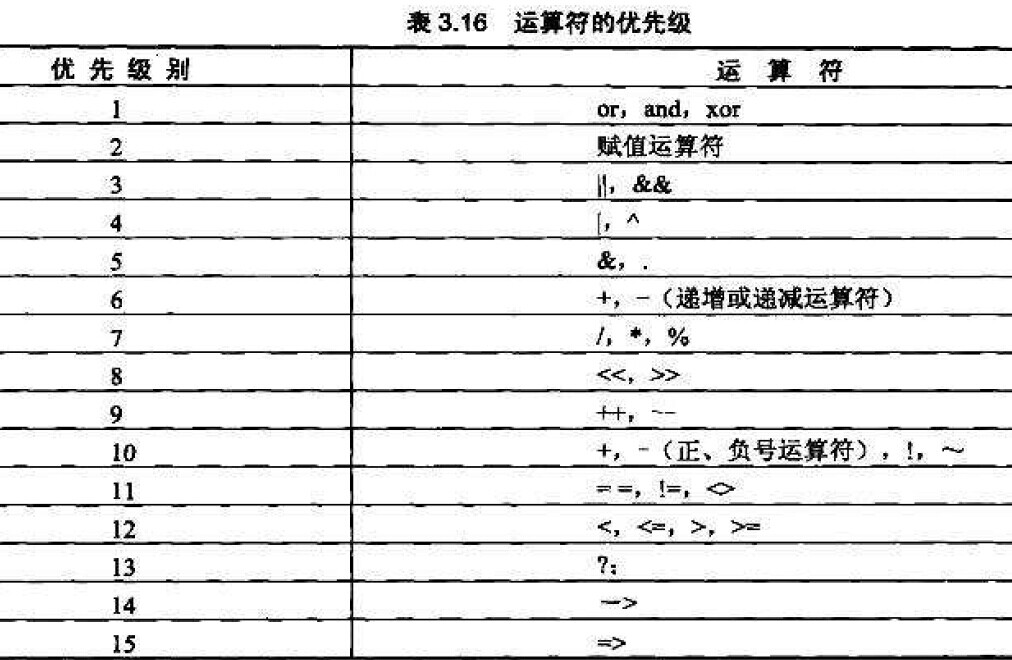 表 3.16 运算符的优先级
优先级别 运算符
1 or，and，xor
2 赋值运算符
3 ||，&&
4 |，^
5 &，.
6 +，-（递增或递减运算符）
7 /，*，%
8 <<，>>
9 ++，--
10 +，-（正、负号运算符），!，~
11 ==，!=，<>
12 <，<=，>，>=
13 ?:
14 ->
15 =>